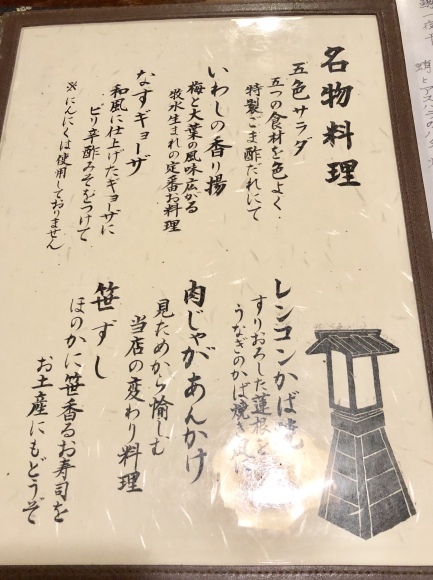 名物料理
五色サラダ
五つの食材を色よく
特製ごま酢だれにて
いわしの香り揚
梅と大葉の風味広がる
牧水生まれの定番お料理
なすギョーザ
和風に仕上げたギョーザに
ピリ辛酢みそをつけて
※にんにくは使用しておりません
レンコンかば焼
すりおろした蓮根を
うなぎのかば焼き風に
肉じゃがあんかけ
見ためから愉しむ
当店の変わり料理
笹ずし
ほのかに笹香るお寿司を
お土産にもどうぞ